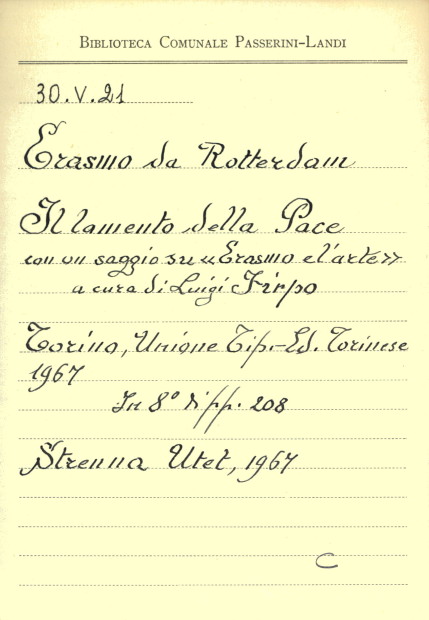 BIBLIOTECA COMUNALE PASSERINI-LANDI
30.V.21
Erasmo da Rotterdam
Il lamento della Pace
con un saggio su «Erasmo e l'arte»
a cura di Luigi Firpo
Torino, Unione Tip.-Ed. Torinese
1967
In 8° di pp. 208
Strenna Utet, 1967
C